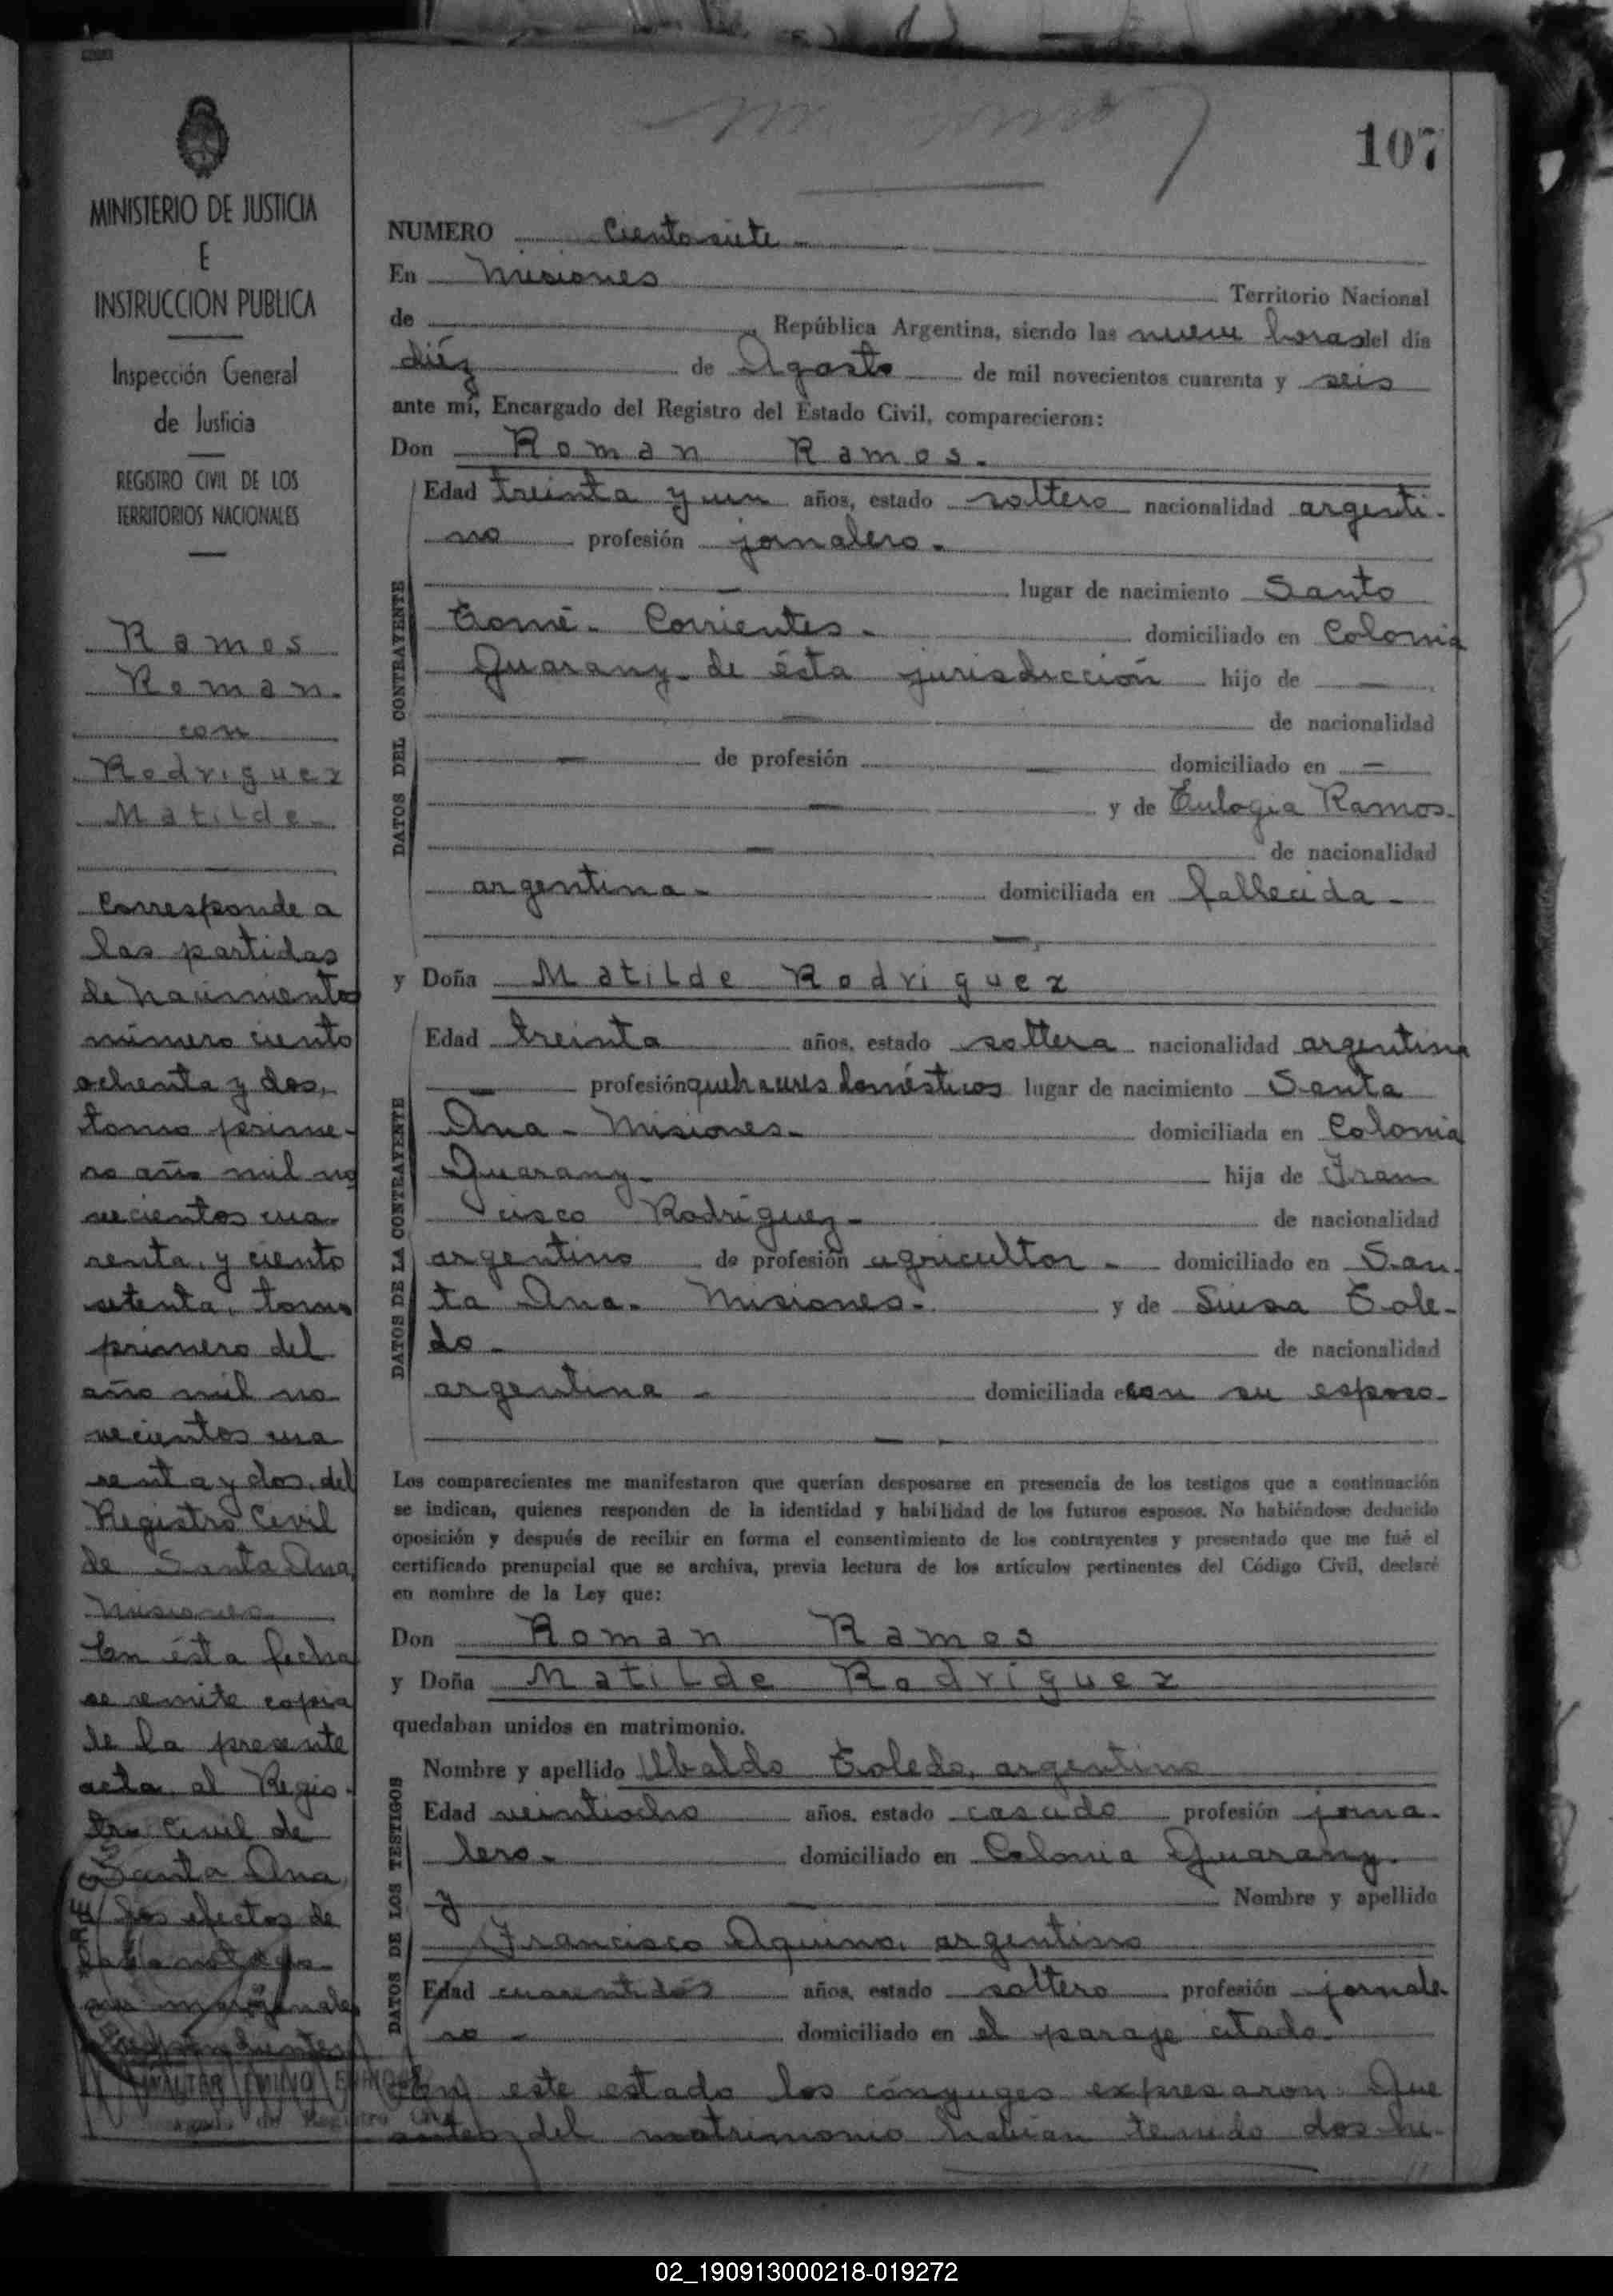 107
MINISTERIO DE JUSTICIA
E
INSTRUCCION PUBLICA
Inspección General
de Justicia
REGISTRO CIVIL DE LOS
TERRITORIOS NACIONALES
Ramos
Roman.
con
Rodriguez
Matilde.
Corresponde a
las partidas
de nacimientos
número ciento
ochenta y dos,
tomo prime-
ro año mil no
vecientos cua-
renta, y ciento
setenta, tomo
primero del
año mil no
vecientos cua
renta y dos, del
Registro Civil
de Santa Ana,
Misiones
En ésta fecha
se remite copia
de la presente
acta, al Regis-
tro Civil de
Santa Ana,
a los efectos de
marginales
NUMERO Ciento siete
En Misiones Territorio Nacional
de República Argentina, siendo las nueve horas del día
diéz de Agosto de mil novecientos cuarenta y seis
ante mí, Encargado del Registro del Estado Civil, comparecieron:
Don Roman Ramos.
DATOS DEL CONTRAYENTE
Edad treinta y un años, estado soltero nacionalidad argenti-
no profesión jornalero.
lugar de nacimiento Santo
Tomé. Corrientes. domiciliado en Colonia
Guarany. de ésta jurisdicción hijo de —
— de nacionalidad
— de profesión — domiciliado en —
— y de Eulogia Ramos.
— de nacionalidad
argentina. domiciliada en fallecida.
y Doña Matilde Rodriguez
DATOS DE LA CONTRAYENTE
Edad treinta años, estado soltera nacionalidad argentina
— profesión quehaceres domésticos lugar de nacimiento Santa
Ana - Misiones. domiciliada en Colonia
Guarany. hija de Fran
cisco Rodríguez. de nacionalidad
argentino de profesión agricultor. domiciliado en San-
ta Ana. Misiones. y de Luisa Tole-
do. de nacionalidad
argentina. domiciliada con su esposo.
Los comparecientes me manifestaron que querían desposarse en presencia de los testigos que a continuación
se indican, quienes responden de la identidad y habilidad de los futuros esposos. No habiéndose deducido
oposición y después de recibir en forma el consentimiento de los contrayentes y presentado que me fué el
certificado prenupcial que se archiva, previa lectura de los artículos pertinentes del Código Civil, declaré
en nombre de la Ley que:
Don Roman Ramos
y Doña Matilde Rodríguez
quedaban unidos en matrimonio.
DATOS DE LOS TESTIGOS
Nombre y apellido Ubaldo Toledo, argentino
Edad veintiocho años, estado casado profesión jorna-
lero. domiciliado en Colonia Guarany.
y Nombre y apellido
Francisco Aquino, argentino
Edad cuarentidós años, estado soltero profesión jornale
ro - domiciliado en el paraje citado.
En este estado los cónyuges expresaron: Que
antes del matrimonio habían tenido dos hi-
02_190913000218-019272